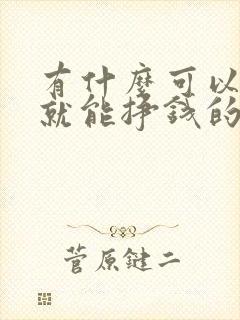 有什麼可以
就能掙錢的
菅原鍵二